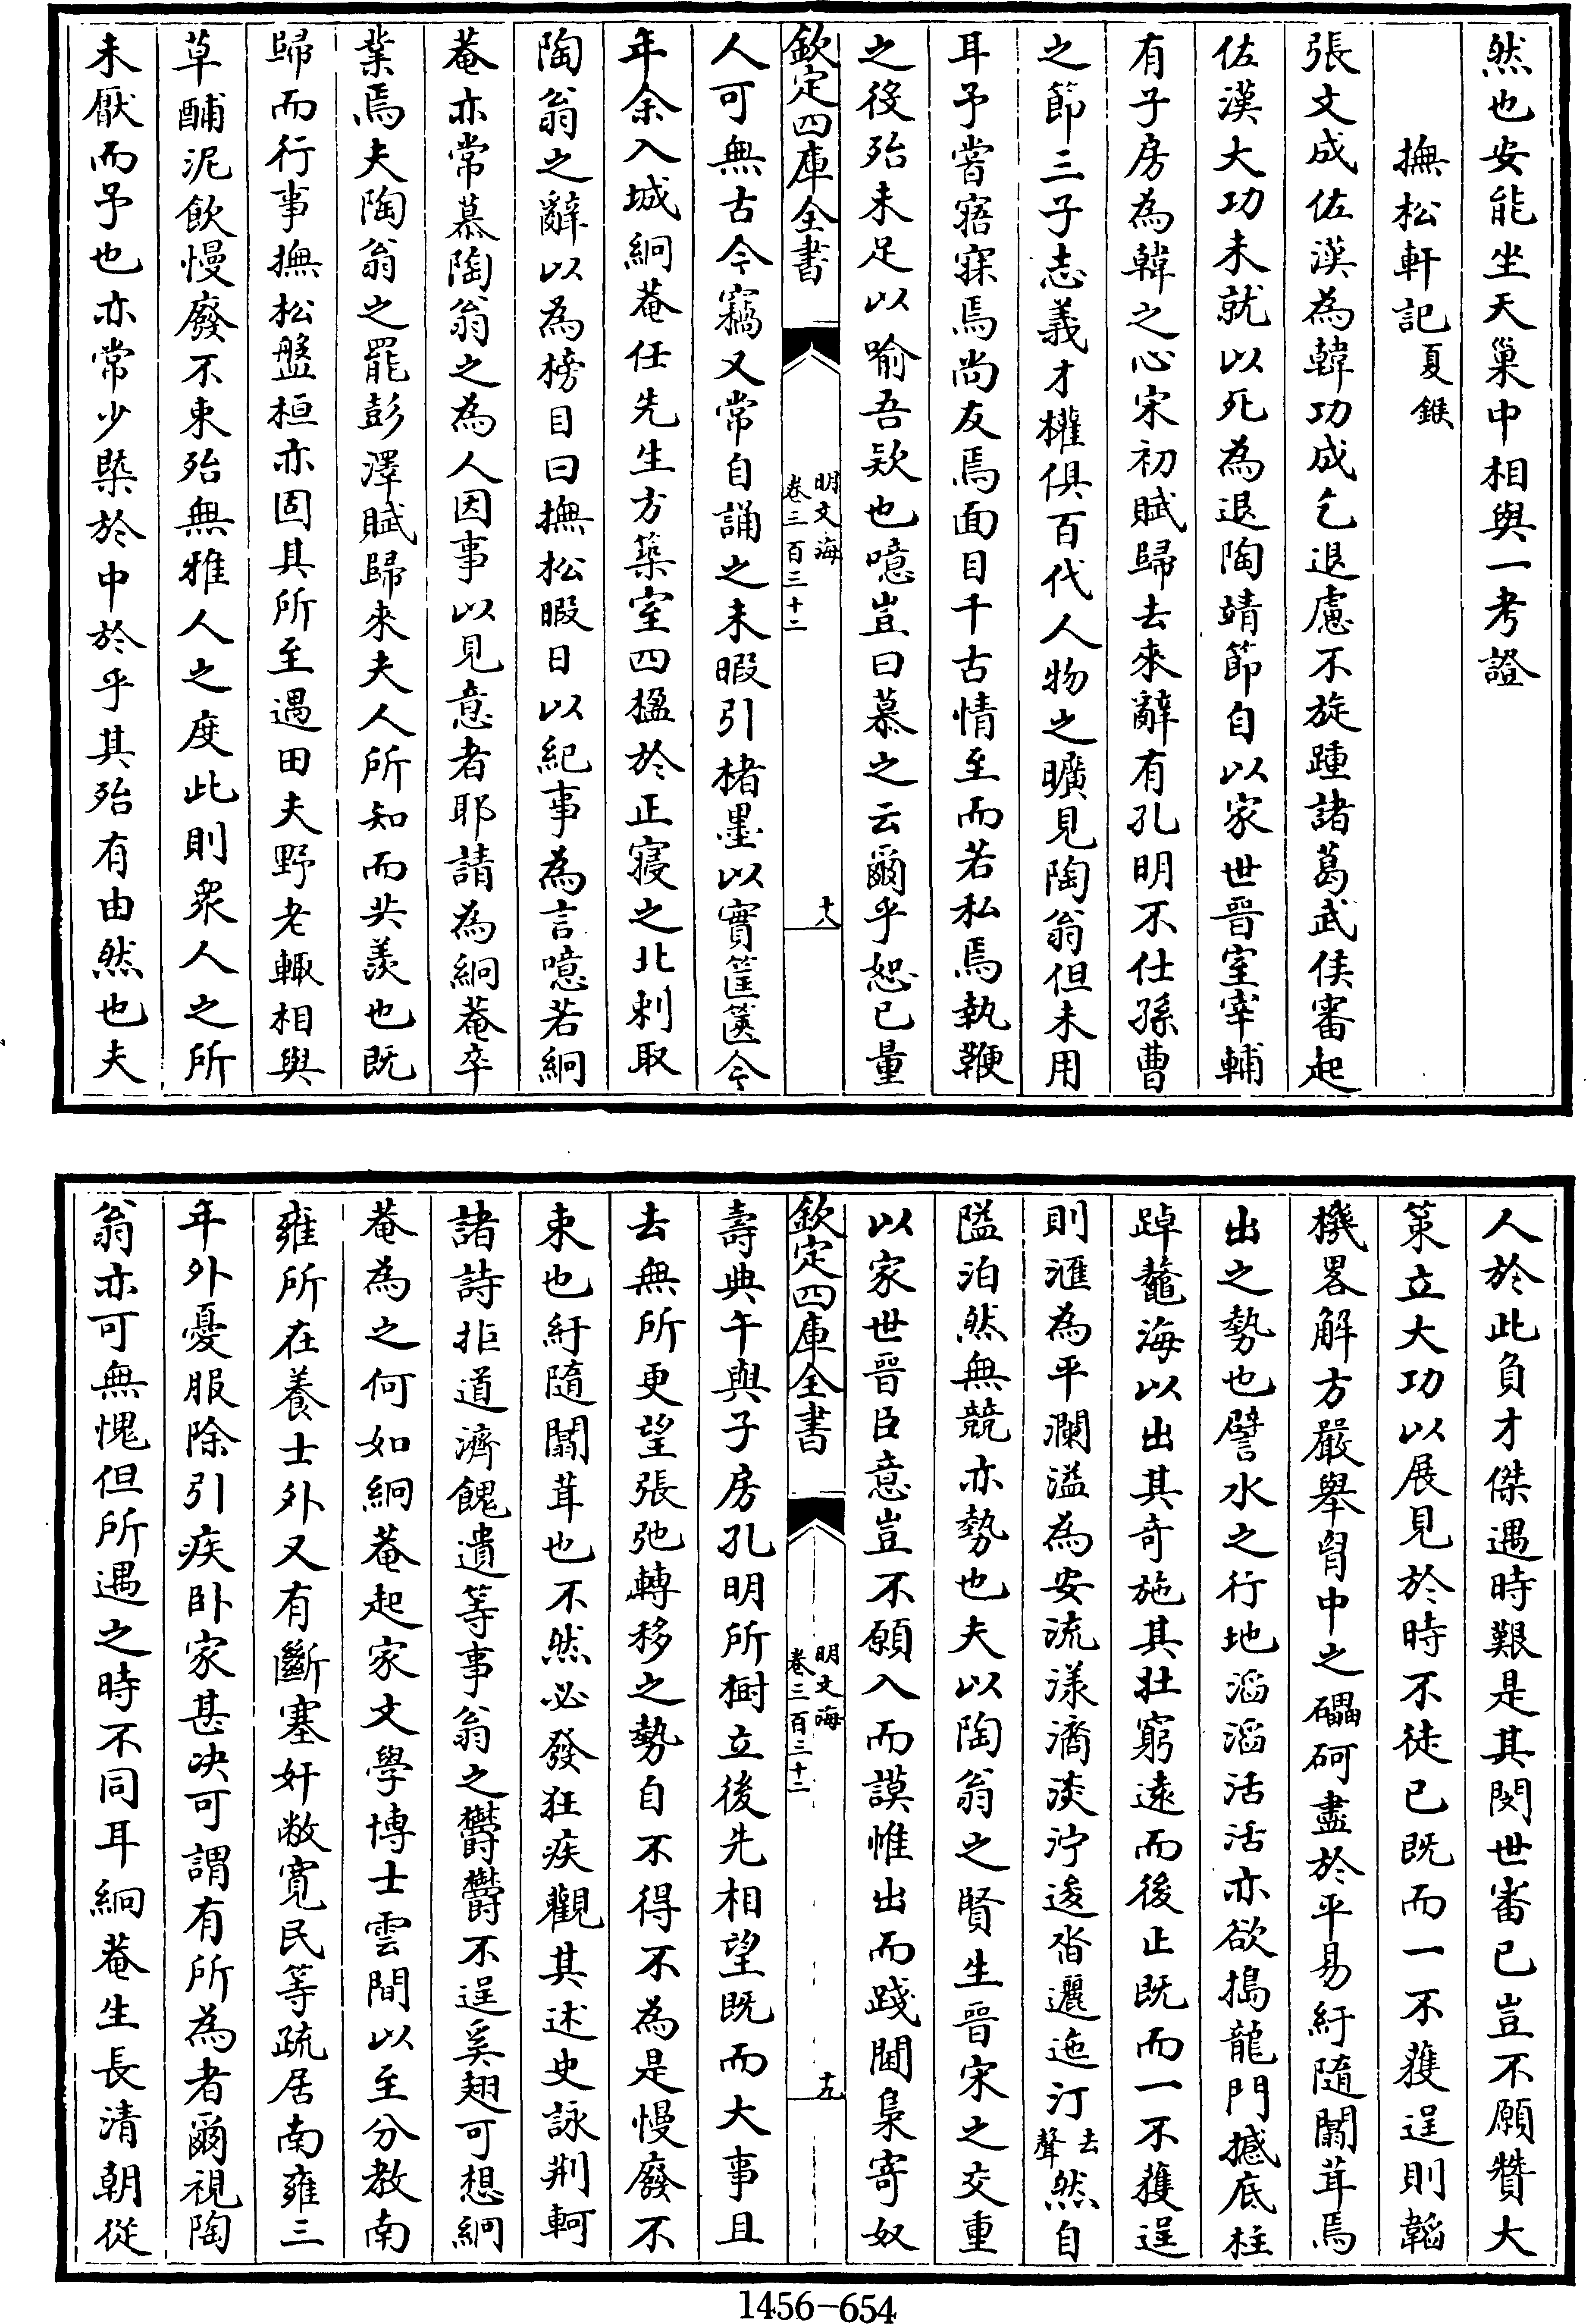 然也安能坐天巢中相與一考證
撫松軒記夏鍭
張文成佐漢為韓功成乞退慮不旋踵諸葛武侯審起
佐漢大功未就以死為退陶靖節自以家世晉室宰輔
有子房為韓之心宋初賦歸去來辭有孔明不仕孫曹
之節三子志義才權俱百代人物之曠見陶翁但未用
耳予嘗寤寐焉尚友焉面目千古情至而若私焉執鞭
之後殆未足以喻吾欵也噫豈曰慕之云爾乎恕已量
欽定四庫全書
明文海
卷三百三十二
十八
人可無古今竊又常自誦之未暇引楮墨以實篋篋今
年余入城絅菴任先生方築室四楹於正寢之北刺取
陶翁之辭以為榜目曰撫松暇日以紀事為言噫若絅
菴亦常慕陶翁之為人因事以見意者耶請為絅菴卒
業焉夫陶翁之罷彭澤賦歸來夫人所知而共羨也既
歸而行事撫松盤桓亦固其所至遇田夫野老輙相與
草酺泥飲慢廢不束殆無雅人之度此則衆人之所
未厭而予也亦常少槩於中於乎其殆有由然也夫
人於此負才傑遇時艱是其閔世審已豈不願贊大
策立大功以展見於時不徒已既而一不獲逞則韜
機畧解方嚴舉胷中之礧砢盡於平易紆隨闒茸焉
出之勢也譬水之行地滔滔活活亦欲搗龍門撼底柱
踔鼇海以出其奇施其壯窮遠而後止既而一不獲逞
則滙為平瀾溢為安流漾潏淡泞逡沓邐迤汀去聲然自
隘泊然無競亦勢也夫以陶翁之賢生晉宋之交重
以家世晉臣意豈不願入而謨惟出而踐閫梟寄奴
欽定四庫全書
明文海
卷三百三十二
十九
壽典午與子房孔明所樹立後先相望既而大事且
去無所更望張弛轉移之勢自不得不為是慢廢不
束也紆隨闒茸也不然必發狂疾觀其述史詠荆軻
諸詩拒道濟餽遺等事翁之欝欝不逞奚翅可想絅
菴為之何如絅菴起家文學博士雲間以至分教南
雍所在養士外又有斷塞奸敝寛民等疏居南雍三
年外憂服除引疾卧家甚决可謂有所為者爾視陶
翁亦可無愧但所遇之時不同耳絅菴生長清朝從
1456-654